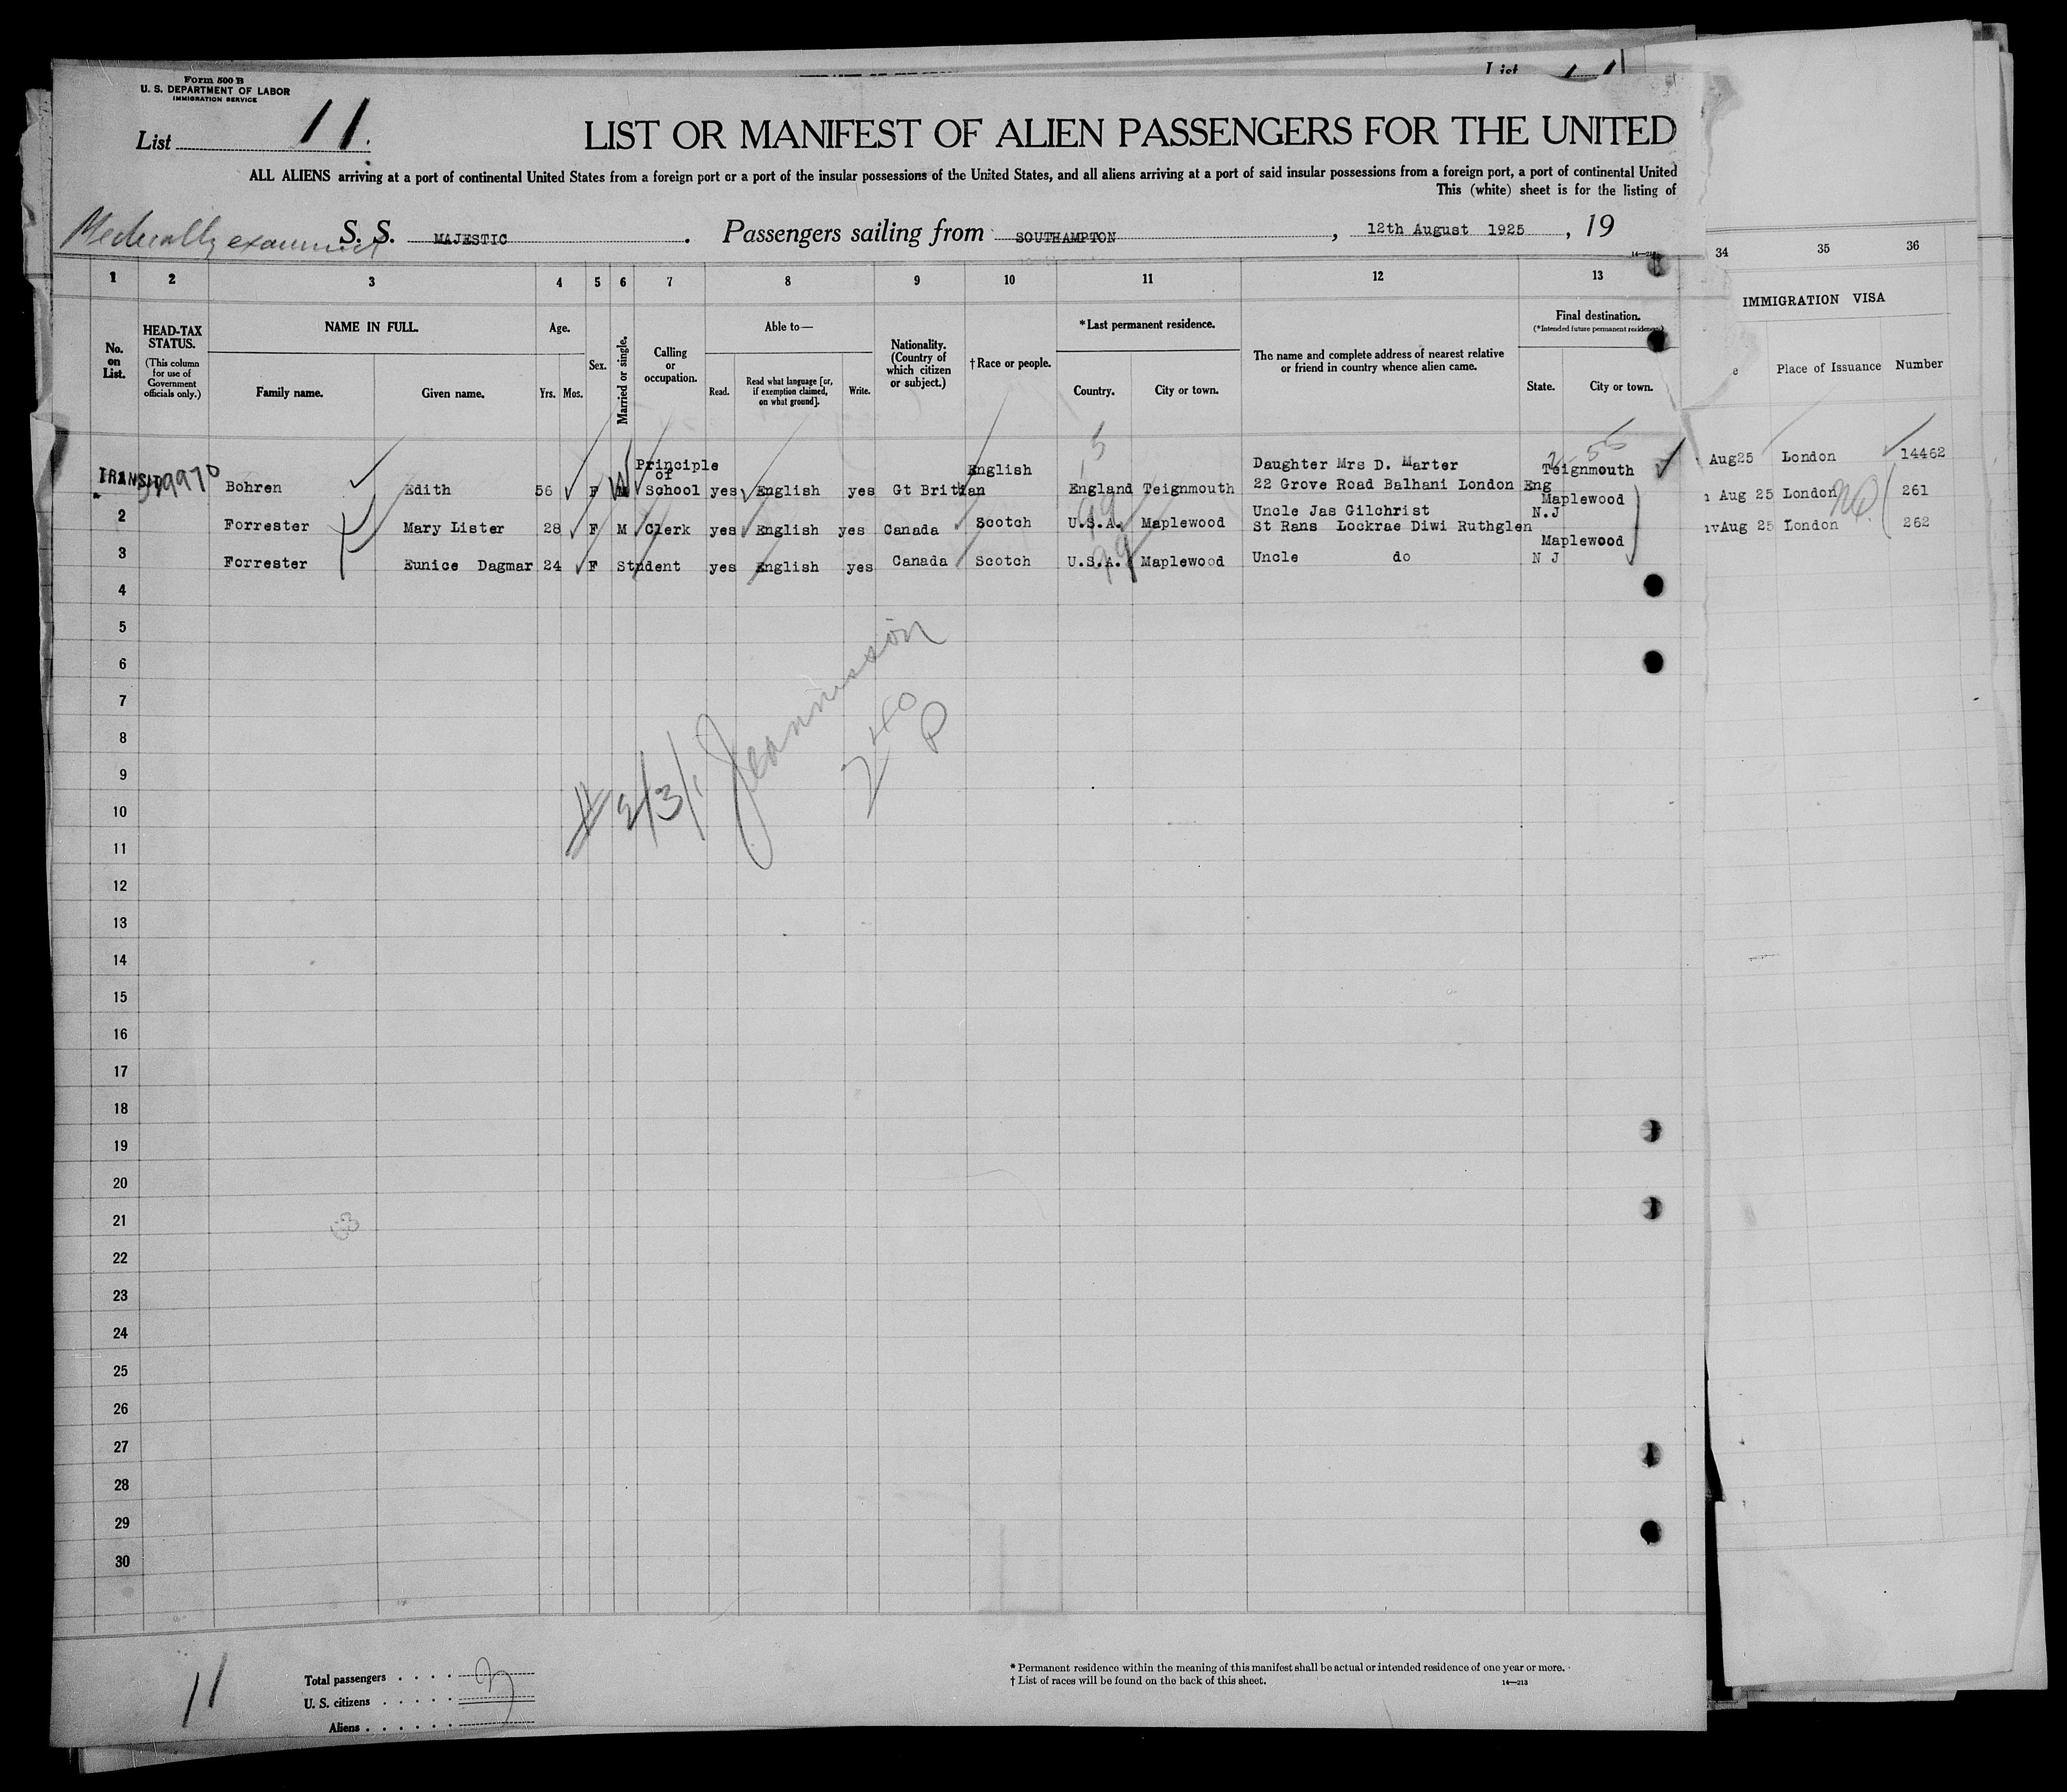 Form 500 B
U. S. DEPARTMENT OF LABOR
IMMIGRATION SERVICE
List 11.
List
LIST OR MANIFEST OF ALIEN PASSENGERS FOR THE UNITED
ALL ALIENS arriving at a port of continental United States from a foreign port or a port of the insular possessions of the United States, and all aliens arriving at a port of said insular possessions from a foreign port, a port of continental United
This (white) sheet is for the listing of
Medically examined
S. S. MAJESTIC . Passengers sailing from SOUTHAMPTON , 12th August 1925 , 19
1 2 3 4 5 6 7 8 9 10 11 12 13 34 35 36
No. on List.
HEAD-TAX STATUS.
(This column for use of Government officials only.)
NAME IN FULL.
Family name. Given name.
Age.
Yrs. Mos.
Sex.
Married or single.
Calling or occupation.
Able to—
Read. Read what language [or, if exemption claimed, on what ground]. Write.
Nationality. (Country of which citizen or subject.)
† Race or people.
* Last permanent residence.
Country. City or town.
The name and complete address of nearest relative or friend in country whence alien came.
Final destination.
(*Intended future permanent residence.)
State. City or town.
IMMIGRATION VISA
Place of Issuance Number
TRANSIT Bohren Edith 56 F M Principle of School yes English yes Gt Britian English England Teignmouth Daughter Mrs D. Marter 22 Grove Road Balhani London Eng Teignmouth Aug25 London 14462
2 Forrester Mary Lister 28 F M Clerk yes English yes Canada Scotch U.S.A. Maplewood Uncle Jas Gilchrist St Rans Lockrae Diwi Ruthglen Maplewood N.J Aug 25 London 261
3 Forrester Eunice Dagmar 24 F Student yes English yes Canada Scotch U.S.A. Maplewood Uncle do Maplewood N J Aug 25 London 262
4
5
6
7
8
9
10
11
12
13
14
15
16
17
18
19
20
21
22
23
24
25
26
27
28
29
30
11
Total passengers
U. S. citizens
Aliens
* Permanent residence within the meaning of this manifest shall be actual or intended residence of one year or more.
† List of races will be found on the back of this sheet.
14—213